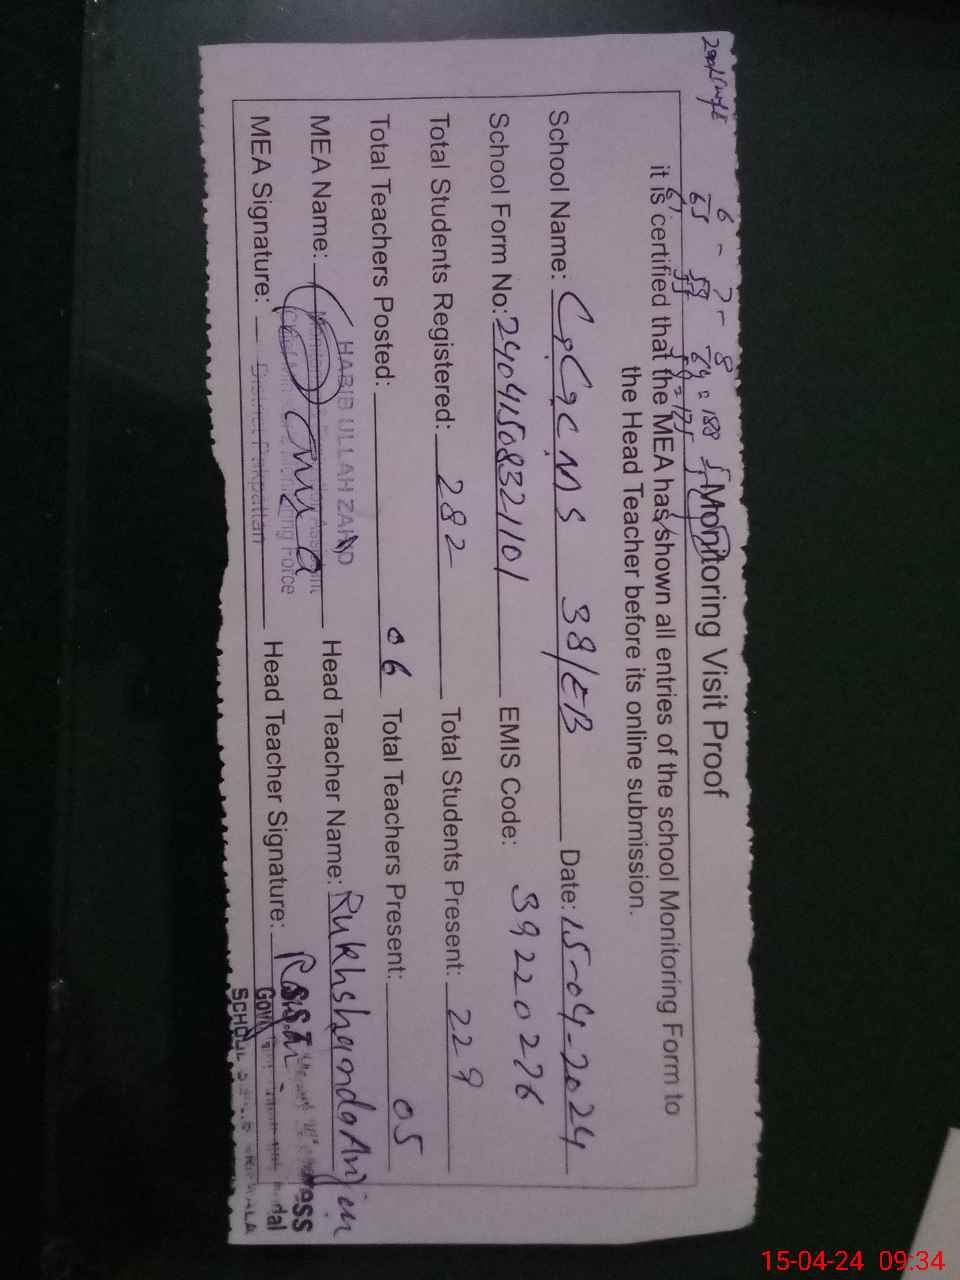 6 - 7 - 8
65 59 64 = 188
Monitoring Visit Proof
it is certified that the MEA has shown all entries of the school Monitoring Form to
the Head Teacher before its online submission.
School Name: GGCMS 38/EB Date: 15-04-2024
School Form No: 24041508321101 EMIS Code: 39220276
Total Students Registered: 282 Total Students Present: 229
Total Teachers Posted: 06 Total Teachers Present: 05
MEA Name: HABIB ULLAH ZAHID Head Teacher Name: Rukhshanda Anjum
MEA Signature: District Pakpattan Head Teacher Signature:
15-04-24 09:34